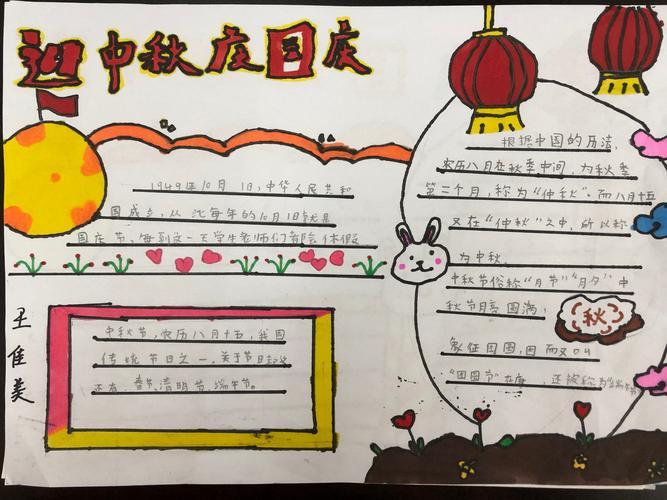 迎中秋庆国庆
1949年10月1日,中华人民共和
国成立,从此每年的10月1日就是
国庆节,每到这一天学生老师们都会休假
中秋节,农历八月十五,我国
传统节日之一,关于节日
还有春节、清明节、端午节。
王佳美
根据中国的历法,
农历八月在秋季中间,为秋季
第二个月,称为“仲秋”而八月十五
又在“仲秋”之中,所以称
为中秋。
中秋节俗称“月节”“月夕”中
秋节月亮圆满,
象征团圆,因而又叫
“团圆节”在
还被称为
秋